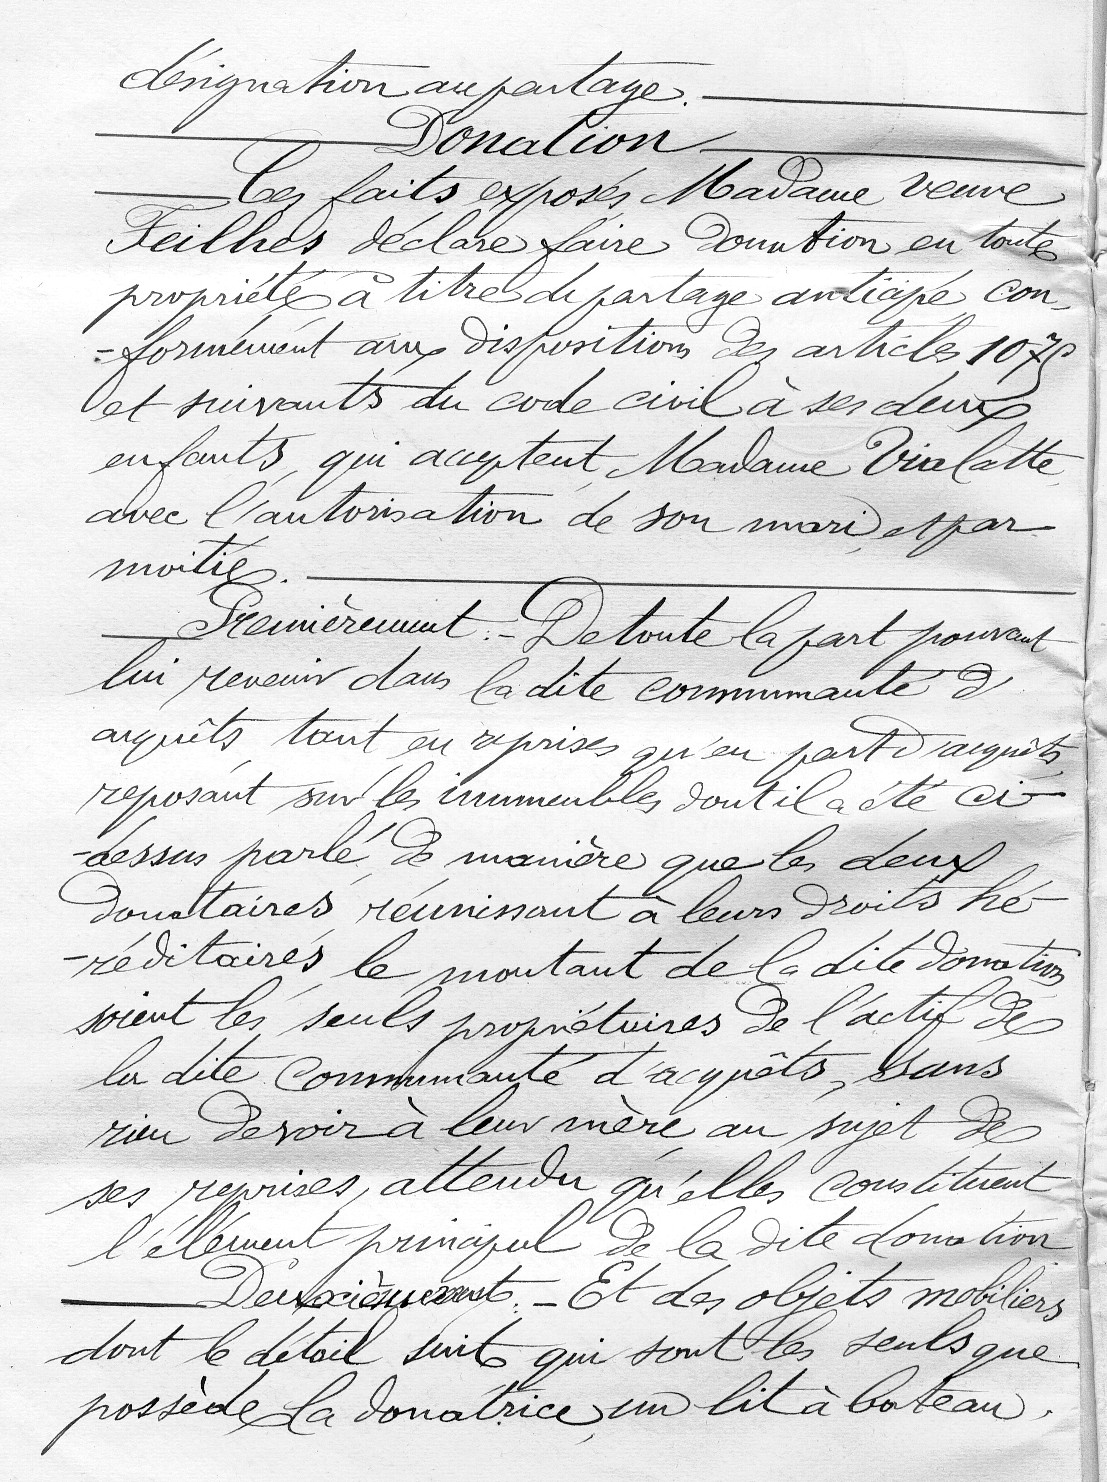 désignation au partage.
Donation
Ces faits exposés, Madame veuve
Feilhes déclare faire donation en toute
propriété à titre de partage anticipé, con-
-formément aux dispositions des articles 1075
et suivants du code civil à ses deux
enfants, qui acceptent, Madame Vialatte,
avec l'autorisation de son mari, et par
moitié.
Premièrement :- De toute la part pouvant
lui revenir dans la dite communauté d'
acquêts, tant en reprises qu'en part d'acquêts
reposant sur les immeubles dont il a été ci-
-dessus parlé, de manière que les deux
donataires réunissant à leurs droits hé-
-réditaires, le montant de la dite donation
soient les seuls propriétaires de l'actif de
la dite communauté d'acquêts, sans
rien devoir à leur mère, au sujet de
ses reprises, attendu qu'elles constituent
l'élément principal de la dite donation
Deuxièmement. - Et des objets mobiliers
dont le détail suit qui sont les seuls que
possède la donatrice, un lit à bateau,